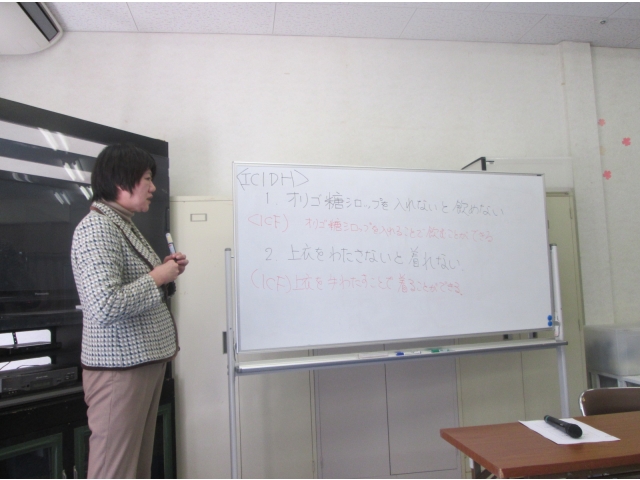 <ICIDH>
1. オリゴ糖シロップを入れないと飲めない
<ICF> オリゴ糖シロップを入れることで飲むことができる。
2 上衣をわたさないと着れない
<ICF> 上衣を わたすことで 着ることができる。